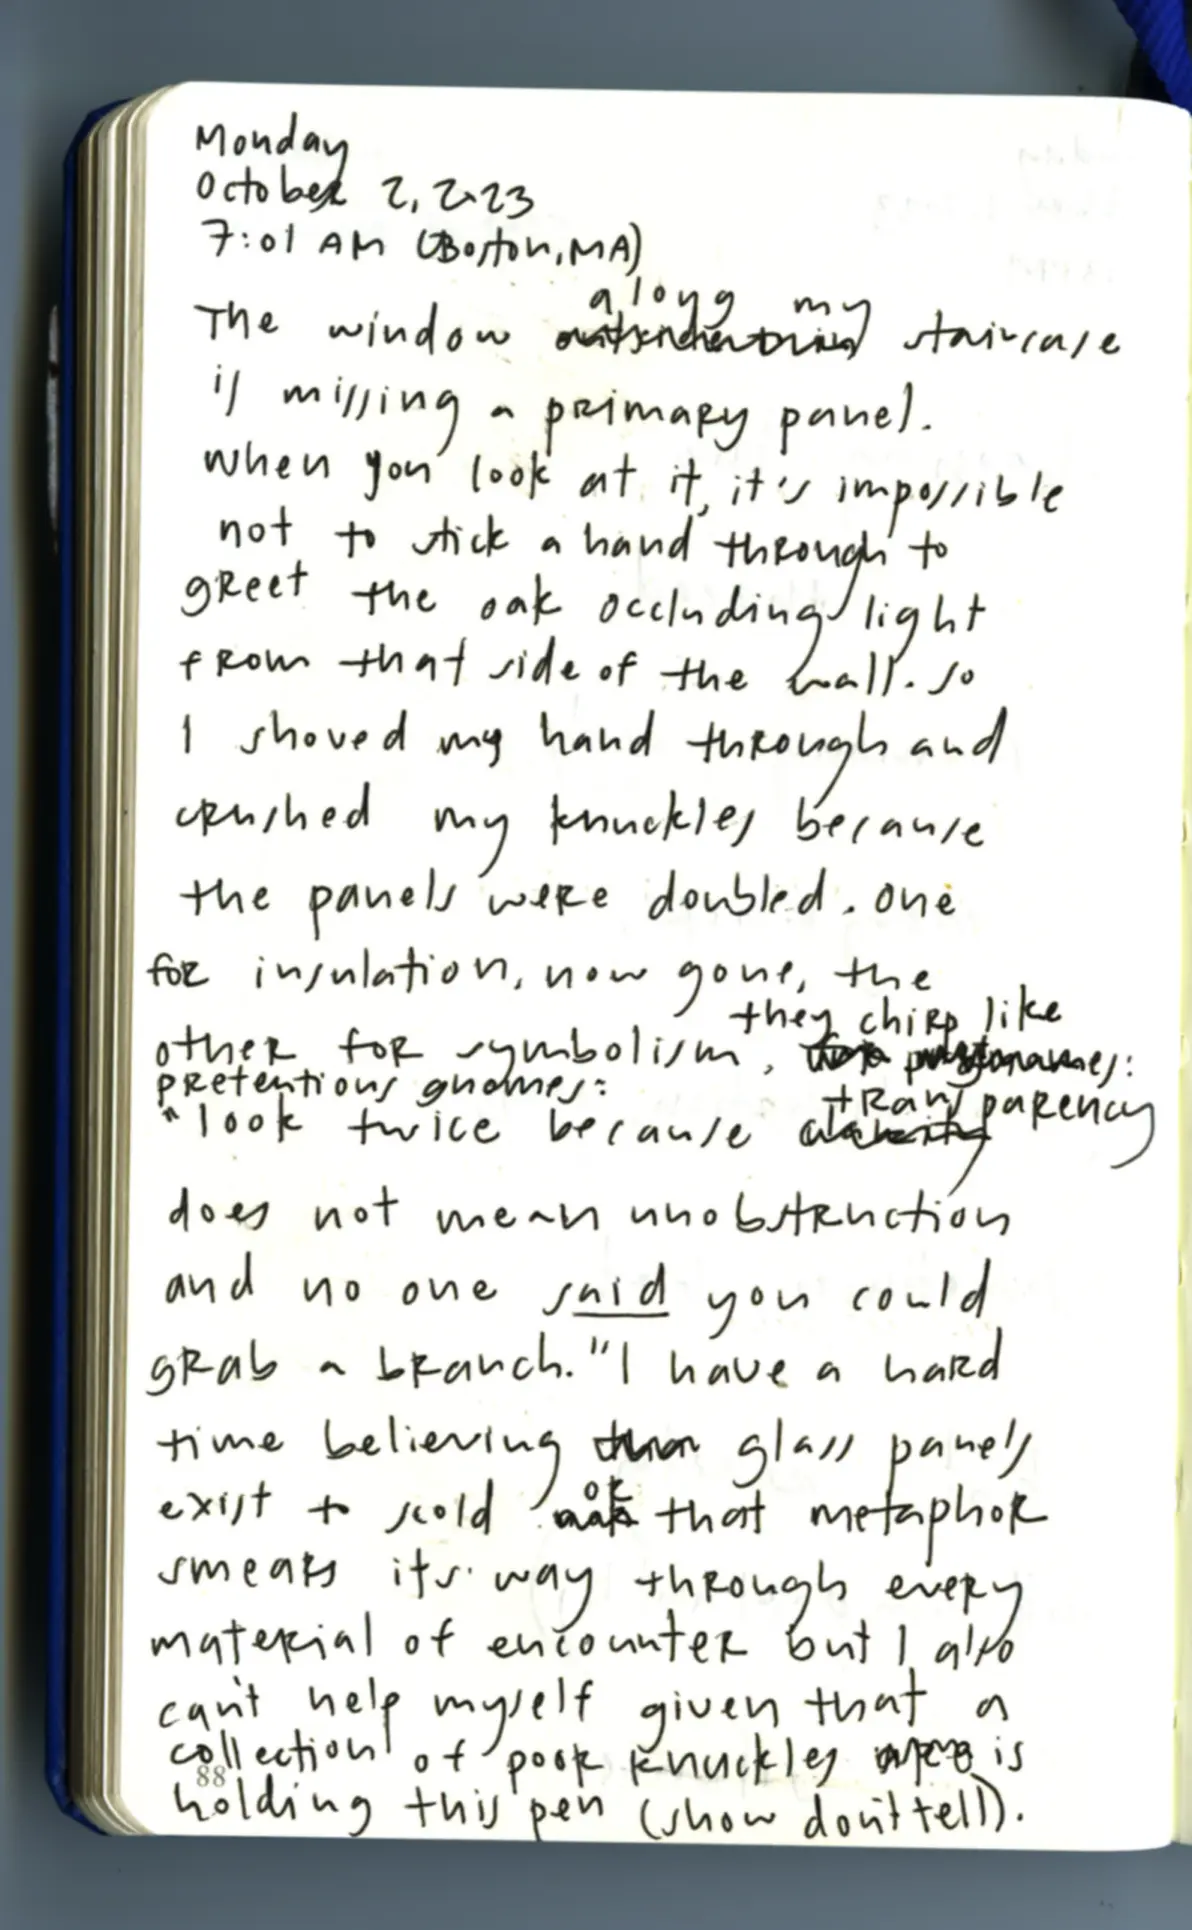 Monday
October 2, 2023
7:01 AM (Boston, MA)
along my
The window staircase
is missing a primary panel.
When you look at it, it's impossible
not to stick a hand through to
greet the oak occluding light
from that side of the wall. So
I shoved my hand through and
crushed my knuckles because
the panels were doubled. One
for insulation, now gone, the
they chirp like
other for symbolism,
pretentious gnomes:
transparency
"look twice because
does not mean unobstruction
and no one said you could
grab a branch." I have a hard
time believing glass panels
exist to scold
or
that metaphor
smears its way through every
material of encounter but I also
can't help myself given that a
collection of poor knuckles is
88
holding this pen (show don't tell).